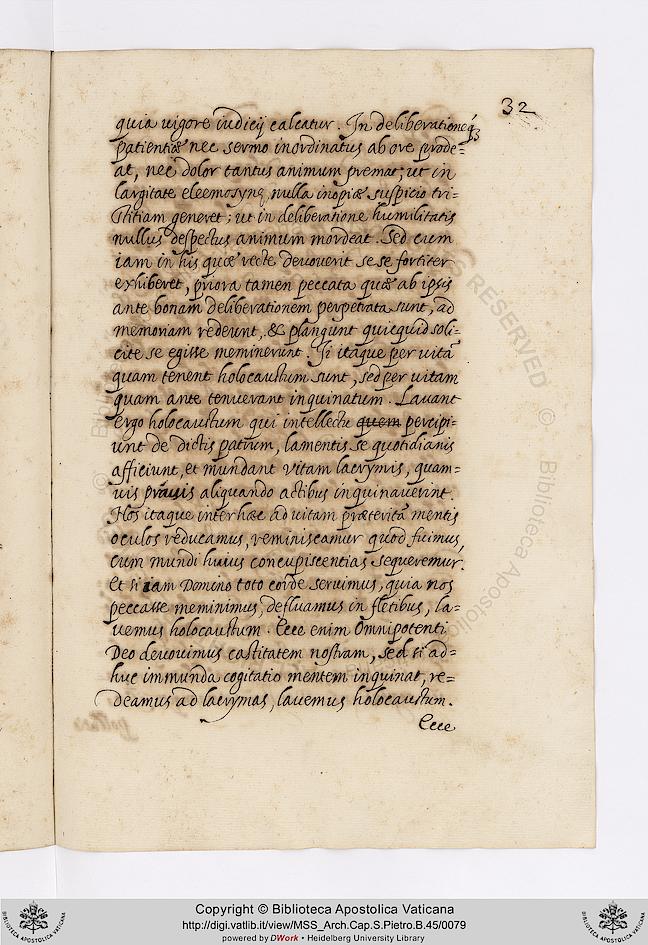 32
quia uigore iudicij calcatur. In deliberatione
patientiæ nec sermo inordinatus ab ore prode=
at, nec dolor tantus animum premat; ut in
largitate eleemosynę, nulla inopiæ suspicio tri-
stitiam generet; ut in deliberatione humilitatis
nullus despectus animum mordeat. Sed cum
iam in his quæ recte deuouerit se se fortiter
exhiberet, priora tamen peccata quæ ab ipsis
ante bonam deliberationem perpetrata sunt, ad
memoriam redeunt, & plangunt quicquid soli-
cite se egisse meminerunt. Ii itaque per vitã
quam tenent holocaustum sunt, sed per vitam
quam ante tenuerant inquinatum. Lauant
ergo holocaustum qui intellectu quem percipi-
unt de dictis patrum, lamentis se quotidianis
afficiunt, et mundant vitam lacrymis, quam=
uis prauis aliquando actibus inquinauerint.
Nos itaque inter hæc ad vitam præteritã mentis
oculos reducamus, reminiscamur quod fuimus,
cum mundi huius concupiscentias sequeremur.
Et si iam Domino toto corde seruimus, quia nos
peccasse meminimus, defluamus in fletibus, la=
uemus holocaustum. Ecce enim Omnipotenti
Deo deuouimus castitatem nostram, sed si ad=
huc immunda cogitatio mentem inquinat, re=
deamus ad lacrymas, lauemus holocaustum.
Ecce
RESERVED ©
© Biblioteca Apostolica
Copyright © Biblioteca Apostolica Vaticana
http://digi.vatlib.it/view/MSS_Arch.Cap.S.Pietro.B.45/0079
powered by DWork • Heidelberg University Library